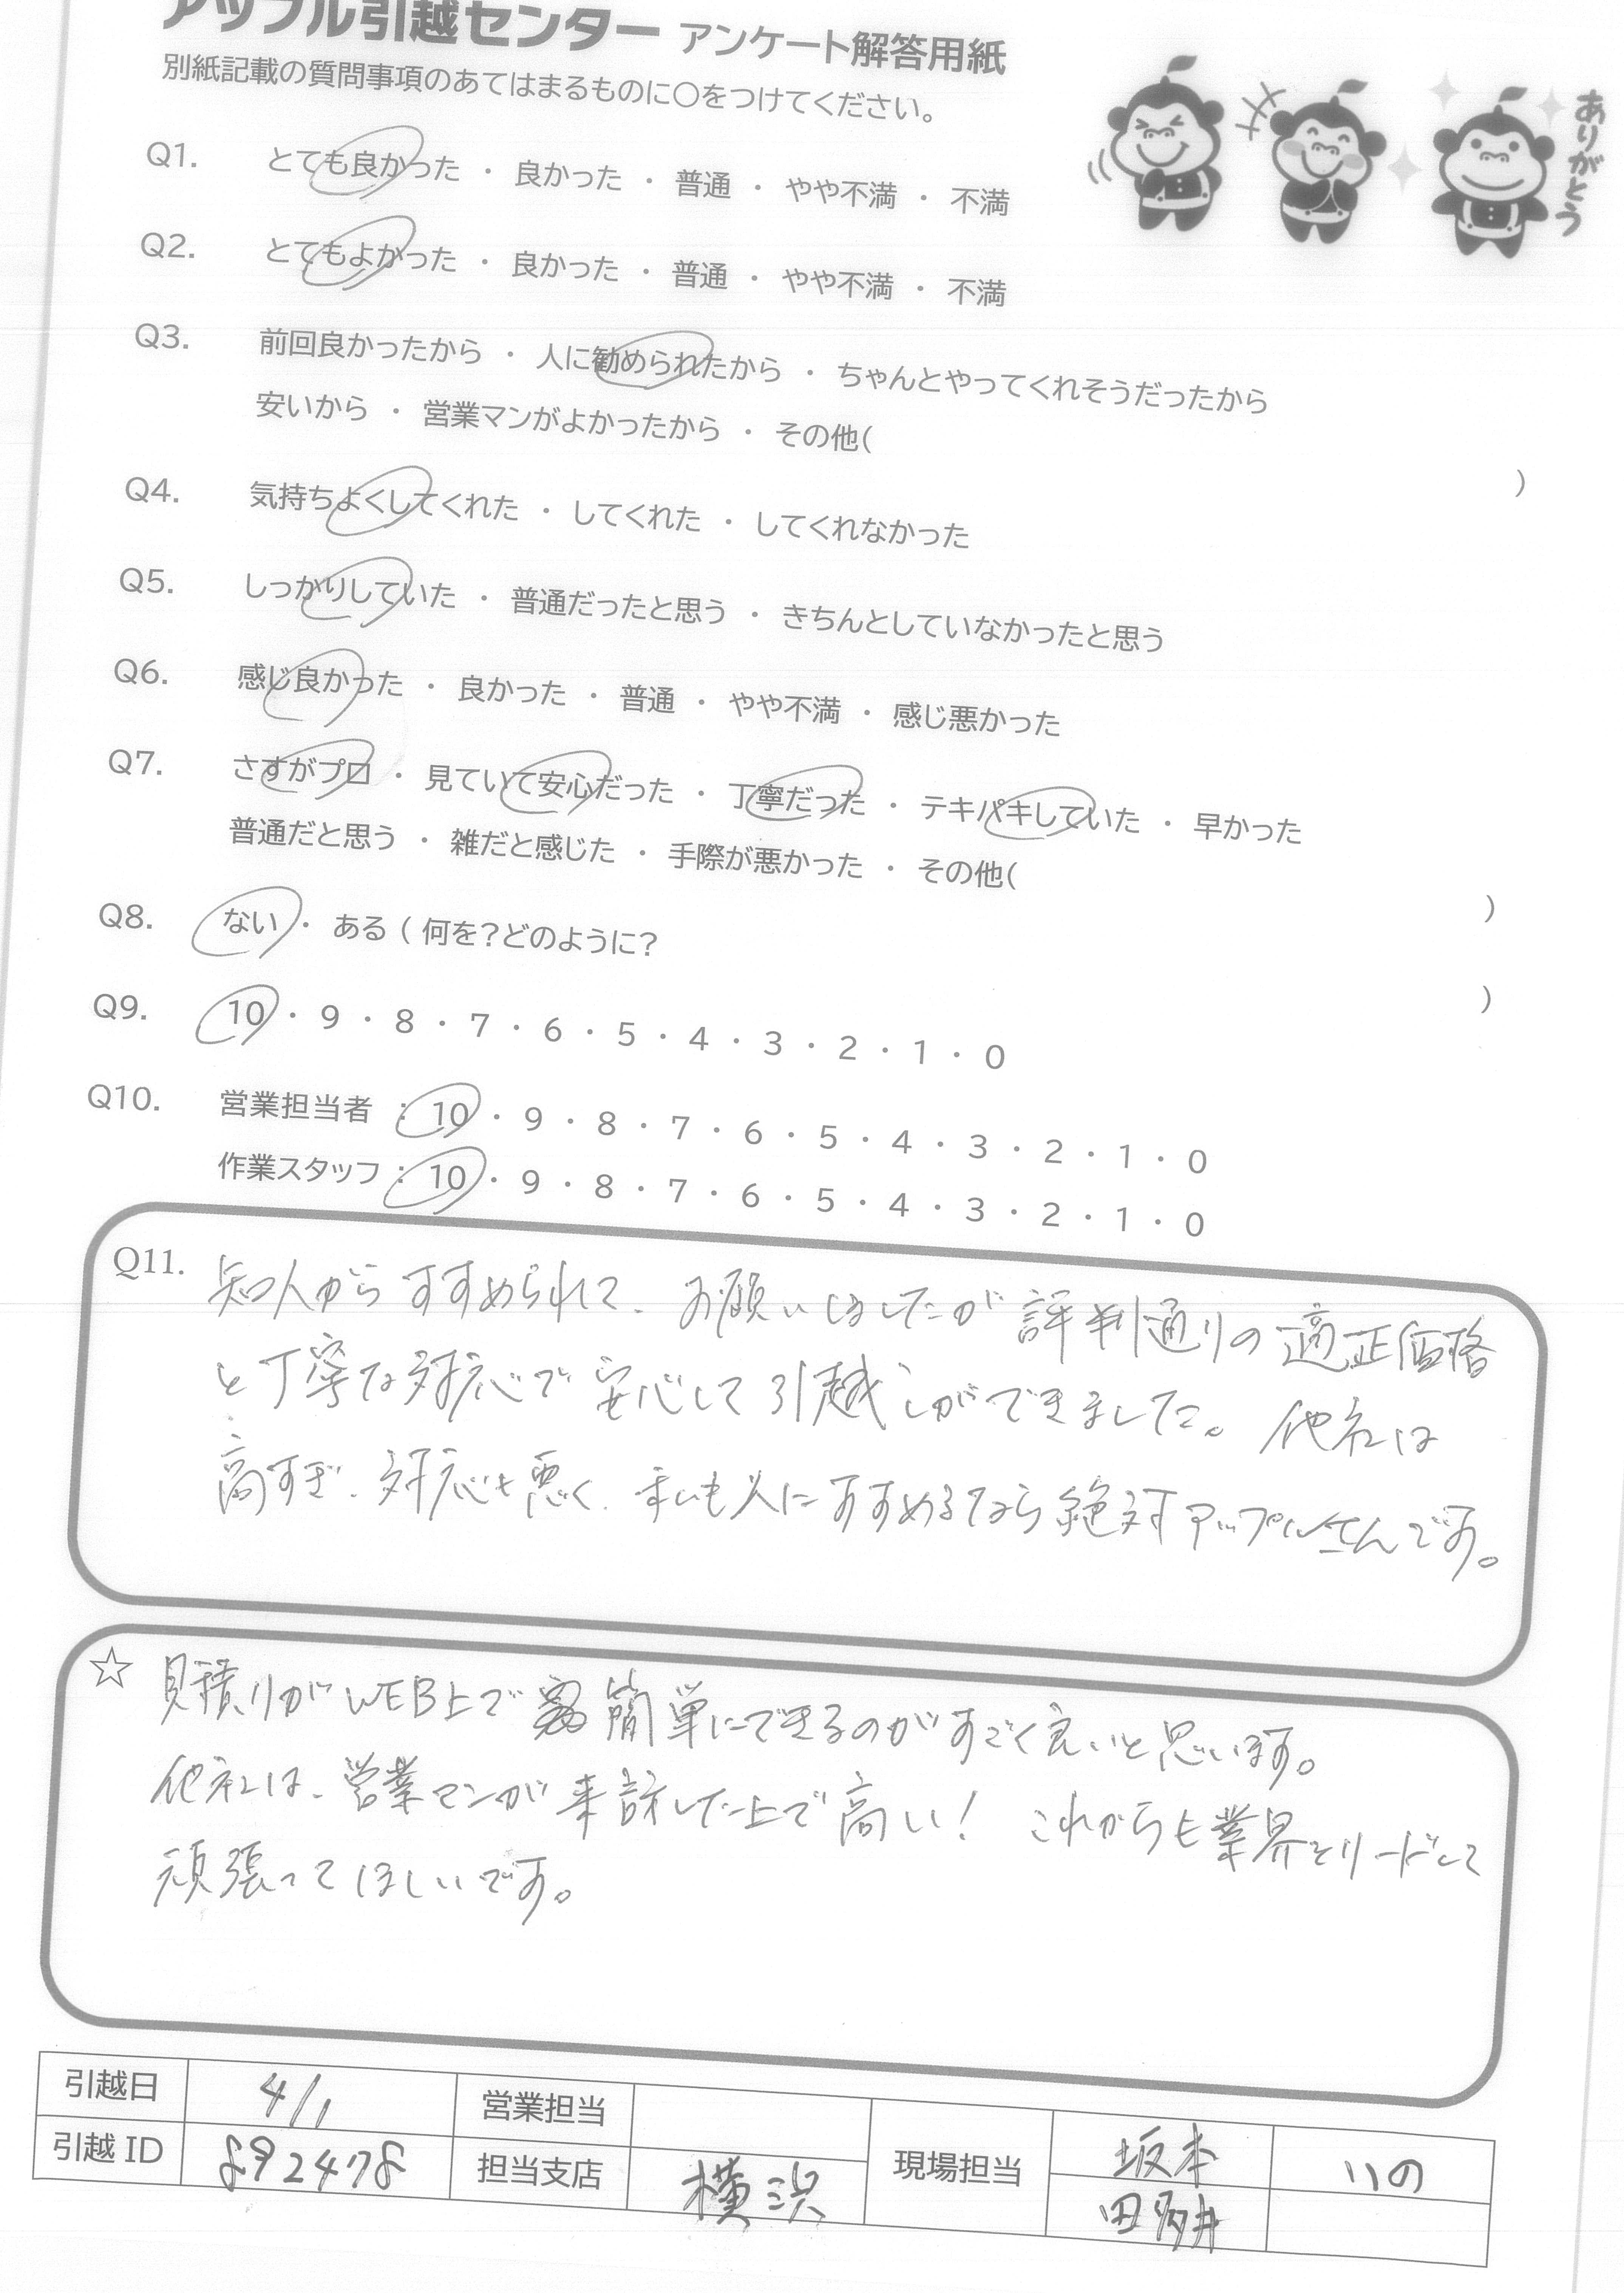 アップル引越センター アンケート解答用紙
別紙記載の質問事項のあてはまるものに○をつけてください。
ありがとう
Q1. とても良かった ・ 良かった ・ 普通 ・ やや不満 ・ 不満
Q2. とてもよかった ・ 良かった ・ 普通 ・ やや不満 ・ 不満
Q3. 前回良かったから ・ 人に勧められたから ・ ちゃんとやってくれそうだったから
安いから ・ 営業マンがよかったから ・ その他( )
Q4. 気持ちよくしてくれた ・ してくれた ・ してくれなかった
Q5. しっかりしていた ・ 普通だったと思う ・ きちんとしていなかったと思う
Q6. 感じ良かった ・ 良かった ・ 普通 ・ やや不満 ・ 感じ悪かった
Q7. さすがプロ ・ 見ていて安心だった ・ 丁寧だった ・ テキパキしていた ・ 早かった
普通だと思う ・ 雑だと感じた ・ 手際が悪かった ・ その他( )
Q8. ない ・ ある ( 何を?どのように? )
Q9. 10 ・ 9 ・ 8 ・ 7 ・ 6 ・ 5 ・ 4 ・ 3 ・ 2 ・ 1 ・ 0
Q10. 営業担当者 : 10 ・ 9 ・ 8 ・ 7 ・ 6 ・ 5 ・ 4 ・ 3 ・ 2 ・ 1 ・ 0
作業スタッフ : 10 ・ 9 ・ 8 ・ 7 ・ 6 ・ 5 ・ 4 ・ 3 ・ 2 ・ 1 ・ 0
Q11. 知人からすすめられて、お願いしましたが評判通りの適正価格
と丁寧な対応で安心して引越しができました。他社は
高すぎ、対応も悪く、私も人にすすめるなら絶対アップルさんです。
☆ 見積りがWEB上で簡単にできるのがすごく良いと思います。
他社は、営業マンが来訪した上で高い! これからも業界をリードして
頑張ってほしいです。
引越日 4/1 営業担当 現場担当 坂本 いの
引越ID 892478 担当支店 横浜 田多井